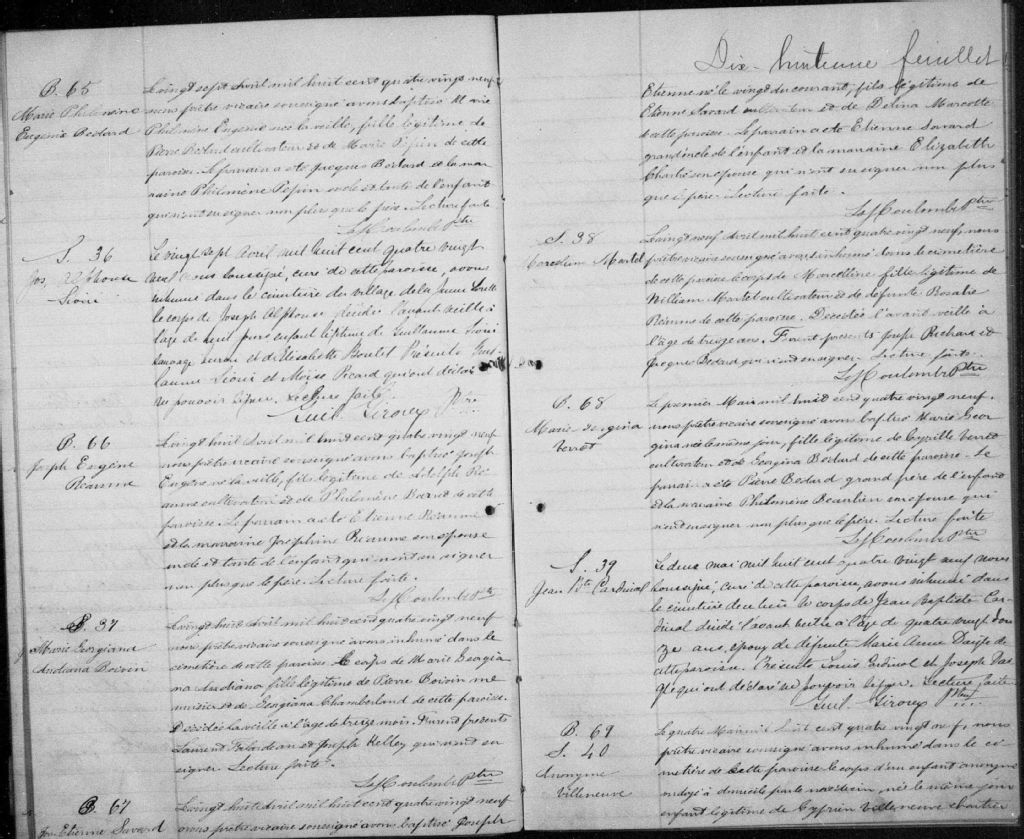 B. 65
Marie Philomène
Eugénie Bédard
Le vingt sept Avril mil huit cent quatre vingt neuf
nous prêtre vicaire soussigné avons baptisé Marie
Philomène Eugénie née la veille, fille légitime de
Pierre Bédard cultivateur et de Marie Pépin de cette
paroisse. Le parrain a été Jacques Bédard et la mar
raine Philomène Pépin oncle et tante de l'enfant
qui n'ont su signer non plus que le père. Lecture faite
L. H. Coulombe Ptre
S. 36
Jos. Alphonse
Sioui
Le vingt sept Avril mil huit cent quatre vingt
neuf nous soussigné, curé de cette paroisse, avons
inhumé dans le cimetière du village de la Jeune Lorette
le corps de Joseph Alphonse décédé l'avant veille à
l'âge de neuf jours enfant légitime de Guillaume Sioui
sauvage huron et de Elisabeth Boutet Présents Guil-
laume Sioui et Moïse Picard qui ont déclaré
ne pouvoir signer. Lecture faite.
Guil. Giroux Ptre
B. 66
Joseph Eugène
Réaume
Le vingt huit Avril mil huit cent quatre vingt neuf
nous prêtre vicaire soussigné avons baptisé Joseph
Eugène né la veille, fils légitime de Adolphe Ré
aume cultivateur et de Philomène Bédard de cette
paroisse. Le parrain a été Etienne Réaume
et la marraine Joséphine Réaume son épouse
oncle et tante de l'enfant qui n'ont su signer
non plus que le père. Lecture faite.
L. H. Coulombe Ptre
S. 37
Marie Georgiana
Andiana Boivin
Le vingt huit Avril mil huit cent quatre vingt neuf
nous prêtre vicaire soussigné avons inhumé dans le
cimetière de cette paroisse le corps de Marie Georgia
na Andiana fille légitime de Pierre Boivin me
nuisier et de Georgiana Chamberland de cette paroisse.
Décédée la veille à l'âge de treize mois. Furent présents
Laurent et Joseph Kelley qui n'ont su
signer Lecture faite.
L. H. Coulombe Ptre
B. 67
Jos. Etienne Savard
Le vingt huit Avril mil huit cent quatre vingt neuf
nous prêtre vicaire soussigné avons baptisé Joseph
Dix-huitième feuillet
Etienne né le vingt du courant, fils légitime de
Etienne Savard cultivateur et de Délina Marcotte
de cette paroisse. Le parrain a été Etienne Savard
grand oncle de l'enfant et la marraine Elizabeth
Charlé son épouse qui n'ont su signer non plus
que le père. Lecture faite.
L. H. Coulombe Ptre
S. 38
Marcelline Martel
Le vingt neuf Avril mil huit cent quatre vingt neuf, nous
prêtre vicaire soussigné avons inhumé dans le cimetière
de cette paroisse le corps de Marcelline fille légitime de
William Martel cultivateur et de défunte Rosalie
Réaume de cette paroisse. Décédée l'avant veille à
l'âge de treize ans. Furent présents Joseph Richard et
Jacques Bédard qui n'ont su signer. Lecture faite.
L. H. Coulombe Ptre
B. 68
Marie Georgina
Verret
Le premier Mai mil huit cent quatre vingt neuf
nous prêtre vicaire soussigné avons baptisé Marie Geor
gina née le même jour, fille légitime de Cyrille Verret
cultivateur et de Georgina Bédard de cette paroisse. Le
parrain a été Pierre Bédard grand père de l'enfant
et la marraine Philomène Beaulieu son épouse qui
n'ont su signer non plus que le père. Lecture faite
L. H. Coulombe Ptre
S. 39
Jean Bte Cardinal
Le deux mai mil huit cent quatre vingt neuf nous
soussigné, curé de cette paroisse, avons inhumé dans
le cimetière de ce lieu le corps de Jean Baptiste Car-
dinal décédé l'avant veille à l'âge de quatre vingt on
ze ans, époux de défunte Marie Anne de
cette paroisse. Présents Louis Cardinal et Joseph
qui ont déclaré ne pouvoir signer. Lecture faite.
Guil. Giroux Ptre
B. 69
S. 40
Anonyme
Villeneuve
Le quatre Mai mil huit cent quatre vingt neuf, nous
prêtre vicaire soussigné avons inhumé dans le ci
metière de cette paroisse le corps d'un enfant anonyme
ondoyé à domicile par le médecin, né le même jour
enfant légitime de Cyprien Villeneuve